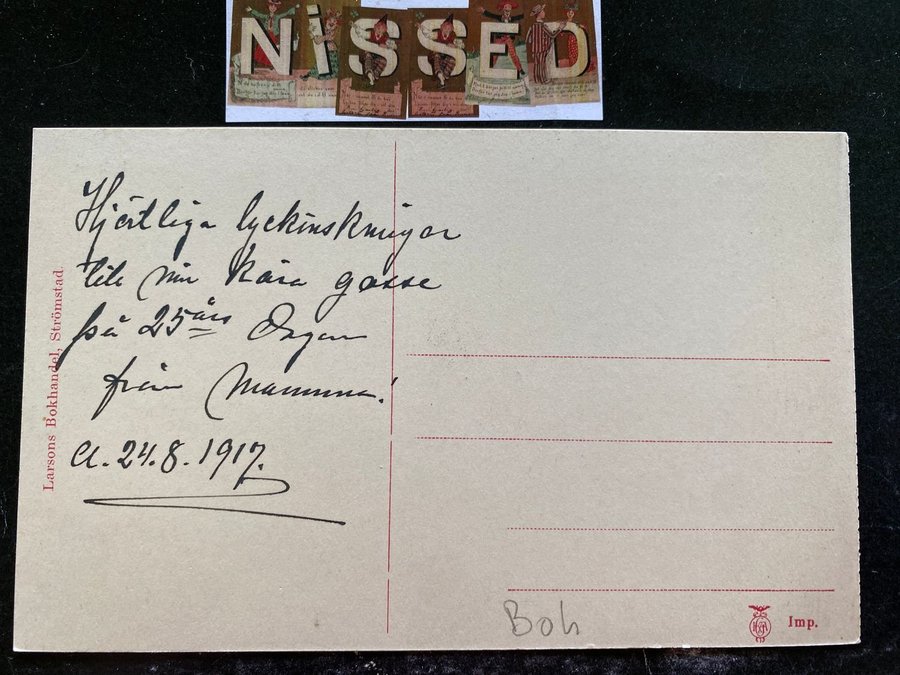 NiSSED
Hjärtliga lyckönskningar
till min kära gosse
på 25 års Dagen
från Mamma!
A. 24.8.1917.
Larsons Bokhandel, Strömstad.
Boh
Imp.